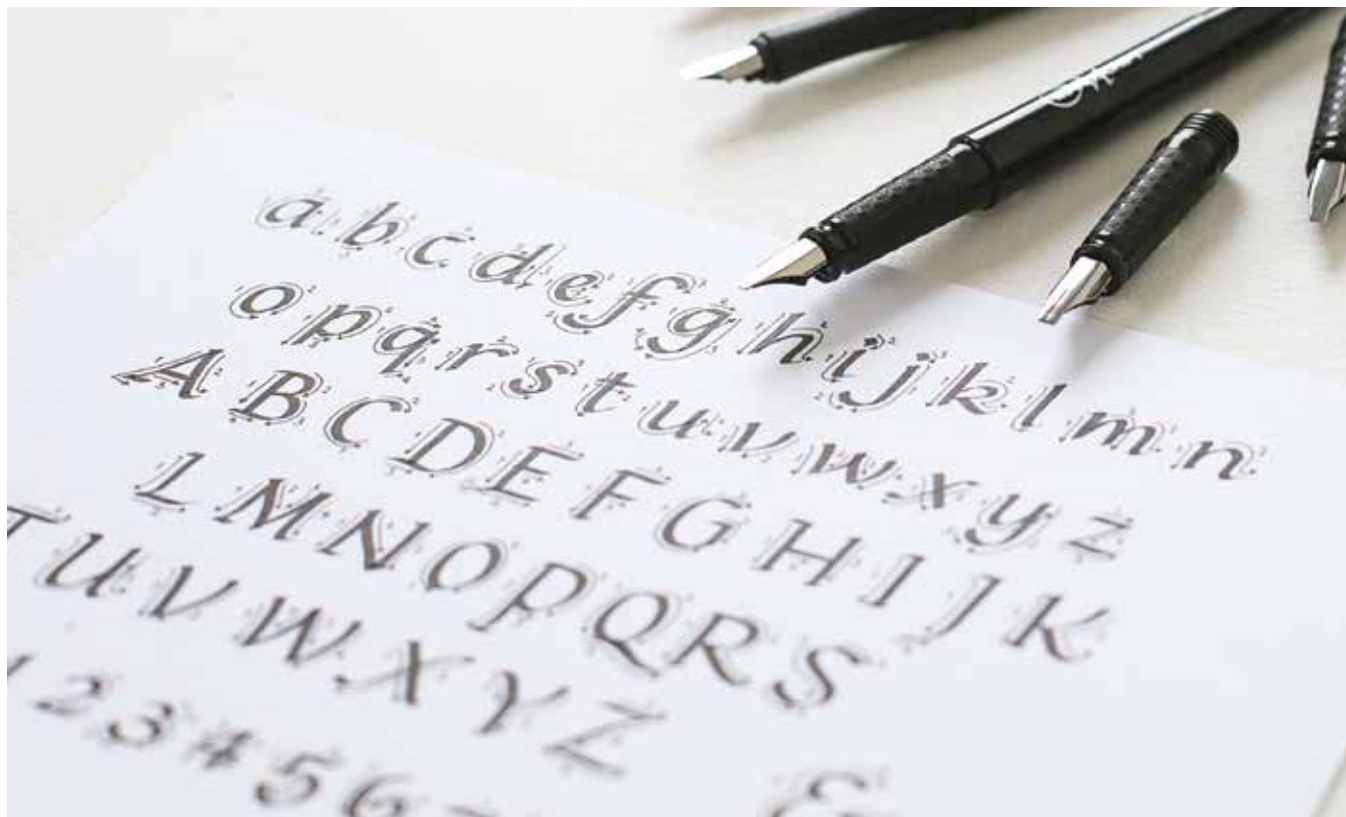 a b c d e f g h i j k l m n
o p q r s t u v w x y z
A B C D E F G H I J K
L M N O P Q R S
T U V W X Y Z
1 2 3 4 5 6